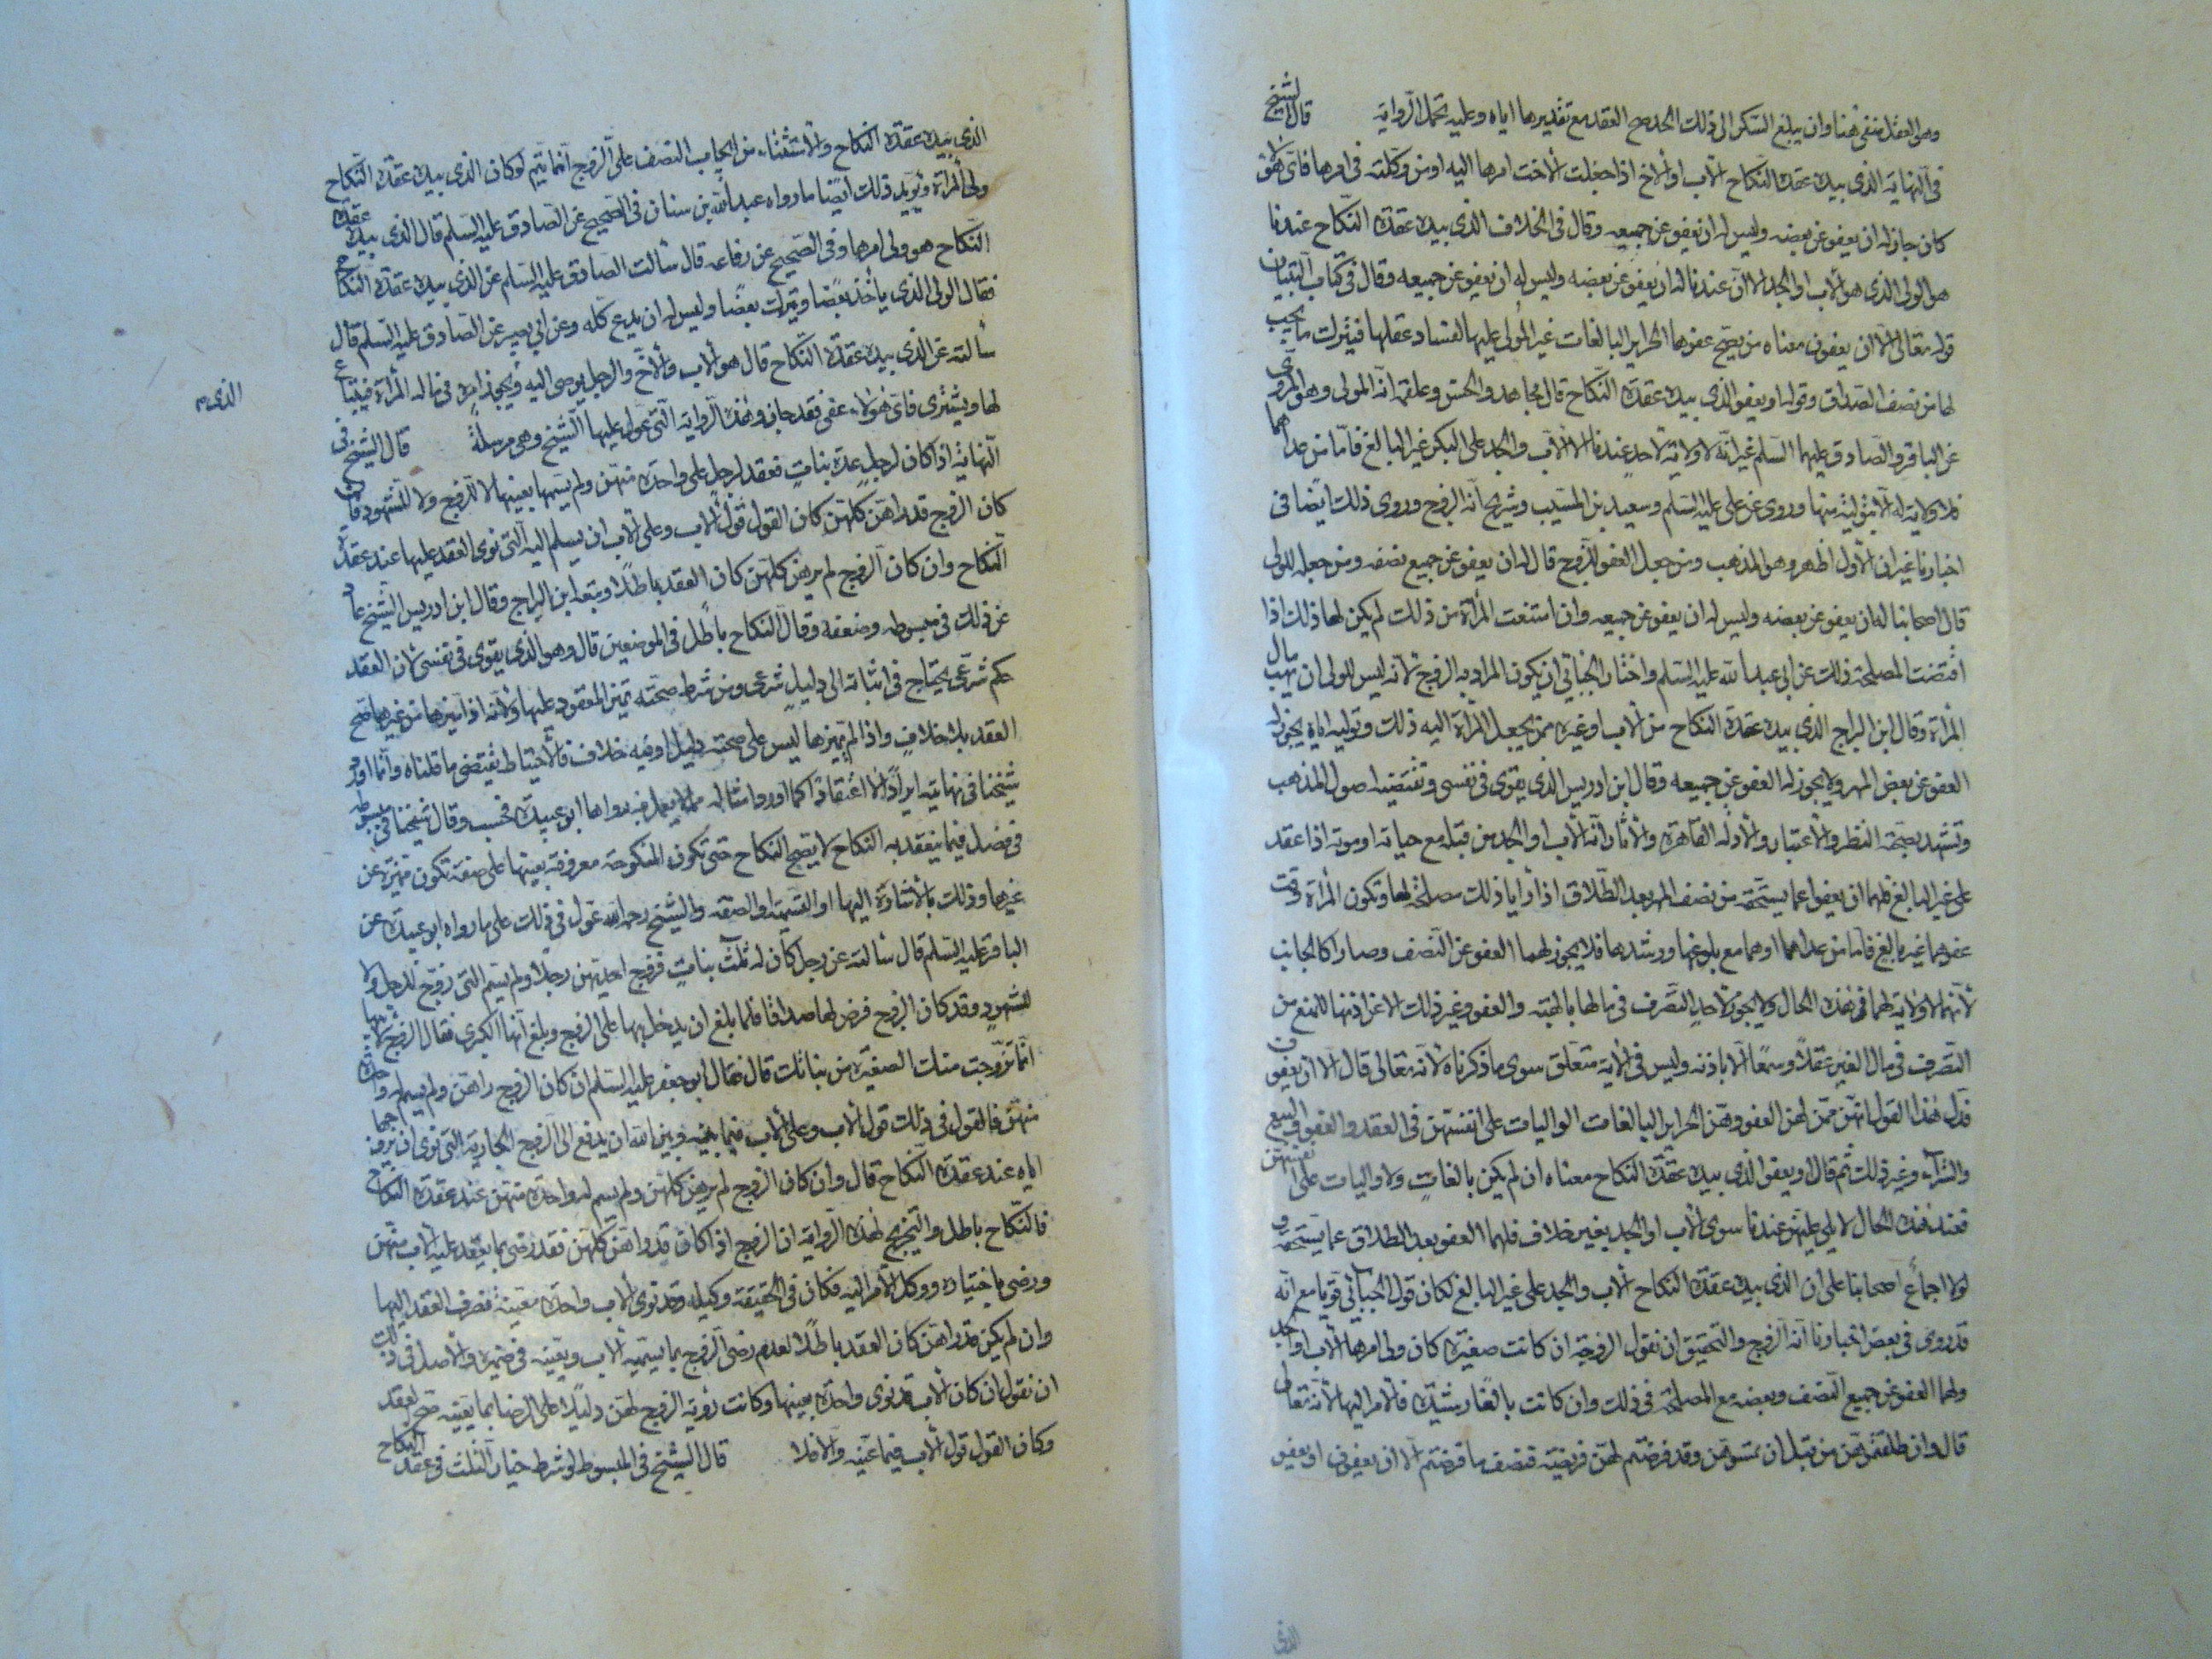 وهى العقل منتفى هنا وان يبلغ السكر الى ذلك الحد صح العقد مع تقديرها اياه وعليه تحمل الرواية قال الشيخ
فى النهاية الذى بيده عقدة النكاح الاب او الاخ اذا جعلت الاخت امرها اليه او من وكلته فى امرها فاى هؤلاء
كان جاز له ان يعفو عن بعضه وليس له ان يعفو عن جميعه وقال فى الخلاف الذى بيده عقدة النكاح عندنا
هو الولى الذى هو الاب او الجد الا ان عندنا له ان يعفو عن بعضه وليس له ان يعفو عن جميعه وقال فى كتاب التبيان
قوله تعالى الا ان يعفون معناه من يصح عفوها الحراير البالغات غير المولى عليها لفساد عقلها فيترك ما يجب
لها من نصف الصداق وقوله او يعفو الذى بيده عقدة النكاح قال مجاهد والحسن وعلقمه انه المولى وهو المروى
عن الباقر والصادق عليهما السلم غير انه لا ولاية لاحد عندنا الا الاب والجد على البكر غير البالغ فاما من عداهما
فلا ولاية له الا بتولية منها وروى عن على عليه السلم وسعيد بن المسيب وشريح انه الزوج وروى ذلك ايضا فى
اخبارنا غير ان الاول اظهر وهو المذهب ومن جعل العفو للزوج قال له ان يعفو عن جميع نصفه ومن جعله للولى
قال اصحابنا له ان يعفو عن بعضه وليس له ان يعفو عن جميعه وان امتنعت المرأة من ذلك لم يكن لها ذلك اذا
اقتضت المصلحة ذلك عن ابى عبد الله عليه السلم واختار الجبائى ان يكون المراد به الزوج لانه ليس للولى ان يهب مال
المرأة وقال ابن البراج الذى بيده عقدة النكاح من الاب او غيره ممن يجعل المرأة اليه ذلك وتوليه اياه يجوز له
العفو عن بعض المهر ولا يجوز له العفو عن جميعه وقال ابن ادريس الذى يقوى فى نفسى وتقتضيه اصول المذهب
وتشهد بصحته النظر والاعتبار والادلة القاهرة والاثار انه الاب او الجد من قبله مع حياته او موته اذا عقد
على غير البالغ فلهما ان يعفوا عما يستحقه من نصف المهر بعد الطلاق اذا رأيا ذلك مصلحة لها وتكون المرأة وقت
عفوهما غير بالغ فاما من عداهما او هما مع بلوغها ورشدها فلا يجوز لهما العفو عن النصف وصارا كالاجانب
لانهما لا ولاية لهما فى هذه الحال ولا يجوز لاحد التصرف فى مالها بالهبة والعفو وغير ذلك الا عن اذنها للمنع من
التصرف فى مال الغير عقلا وسمعا الا باذنه وليس فى الاية متعلق سوى ما ذكرناه لانه تعالى قال الا ان يعفون
فدل هذا القول انهن ممن لهن العفو وهن الحراير البالغات الواليات على انفسهن فى العقد والعفو والبيع
والشراء وغير ذلك ثم قال او يعفو الذى بيده عقدة النكاح معناه ان لم يكن بالغات ولا واليات على انفسهن
فعند هذه الحال لا يلى عليهن عندنا سوى الاب او الجد بغير خلاف فلهما العفو بعد الطلاق عما يستحقه و
لولا اجماع اصحابنا على ان الذى بيده عقدة النكاح الاب والجد على غير البالغ لكان قول الجبائى قويا مع انه
قد روى فى بعض اخبارنا انه الزوج والتحقيق ان نقول الزوجة ان كانت صغيرة كان ولى امرها الاب او الجد
ولهما العفو عن جميع النصف وبعضه مع المصلحة فى ذلك وان كانت بالغا رشيدة فالامر اليها لانه تعالى
قال وان طلقتموهن من قبل ان تمسوهن وقد فرضتم لهن فريضة فنصف ما فرضتم الا ان يعفون او يعفو
الذى
الذى بيده عقدة النكاح والاستثناء من ايجاب النصف على الزوج انما يتم لو كان الذى بيده عقدة النكاح
ولى المرأة ويؤيد ذلك ايضا ما رواه عبد الله بن سنان فى الصحيح عن الصادق عليه السلم قال الذى بيده عقدة
النكاح هو ولى امرها وفى الصحيح عن رفاعه قال سألت الصادق عليه السلم عن الذى بيده عقدة النكاح
فقال الولى الذى يأخذ بعضا ويترك بعضا وليس له ان يدع كله وعن ابى بصير عن الصادق عليه السلم قال
سألته عن الذى بيده عقدة النكاح قال هو الاب والاخ والرجل يوصى اليه ويجوز امره فى ماله المرأة فيبتاع
لها ويشترى فاى هؤلاء عفى فقد جاز وهذه الرواية التى عول عليها الشيخ وهى مرسلة قال الشيخ فى
النهاية اذا كان لرجل عدة بنات فعقد لرجل على واحدة منهن ولم يسمها بعينها لا للزوج ولا للشهود فان
كان الزوج قد راهن كلهن كان القول قول الاب وعلى الاب ان يسلم اليه التى نوى العقد عليها عند عقدة
النكاح وان كان الزوج لم يرهن كلهن كان العقد باطلا وتبعه ابن البراج وقال ابن ادريس الشيخ عاد
عن ذلك فى مبسوطه وضعفه وقال النكاح باطل فى الموضعين قال وهو الذى يقوى فى نفسى لان العقد
حكم شرعى يحتاج فى اثباته الى دليل شرعى ومن شرط صحته تميز المعقود عليها ولانه اذا ميزها من غيرها صح
العقد بلا خلاف واذا لم يميزها ليس على صحته دليل او فيه خلاف فالاحتياط يقتضى ما قلناه وانما اورد
شيخنا فى نهايته ايرادا لا اعتقادا كما اورد امثاله مما لا يعمل به رواها ابو عبيدة فحسب وقال شيخنا فى مبسوطه
فى فصل فيما ينعقد به النكاح لا يصح النكاح حتى تكون المنكوحة معروفة بعينها على صفة تكون متميزة عن
غيرها وذلك بالاشارة اليها او التسمية او الصفه والشيخ رحمه الله عول فى ذلك على ما رواه ابو عبيدة عن
الباقر عليه السلم قال سألته عن رجل كان له ثلث بنات فزوج احديهن رجلا ولم يسم التى زوج للرجل ولا
للشهود وقد كان الزوج فرض لها صداقا فلما بلغ ان يدخل بها على الزوج وبلغ انها الكبرى فقال الزوج لابيها
انما تزوجت منك الصغيرة من بناتك قال فقال ابو جعفر عليه السلم ان كان الزوج راهن ولم يسم له واحدة
منهن فالقول فى ذلك قول الاب وعلى الاب فيما بينه وبين الله ان يدفع الى الزوج الجارية التى نوى ان يزوجها
اياه عند عقدة النكاح قال وان كان الزوج لم يرهن كلهن ولم يسم له واحدة منهن عند عقدة النكاح
فالنكاح باطل والتخريج لهذه الرواية ان الزوج اذا كان قد راهن كلهن فقد رضى بما يعقد عليه الاب منهن
ورضى باختياره ووكل الامر اليه فكان فى الحقيقة وكيله وقد نوى الاب واحدة معينة فصرف العقد اليها
وان لم يكن قد راهن كان العقد باطلا لعدم رضى الزوج بما يسميه الاب ويعينه فى ضميره والاصل فى ذلك
ان نقول ان كان الاب قد نوى واحدة بعينها وكانت رؤية الزوج لهن دليلا على الرضا بما يعينه صح العقد
وكان القول قول الاب فيما عينه والا فلا قال الشيخ فى المبسوط لو شرط خيار الثلث فى عقد النكاح
الذى